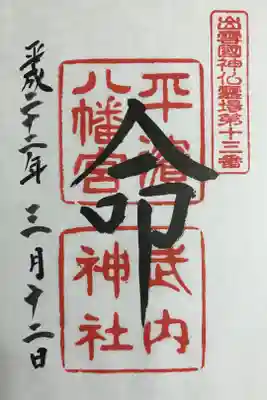 出雲國神仏霊場第十三番
命
平濱
八幡宮
武内
神社
平成二十二年 三月十二日